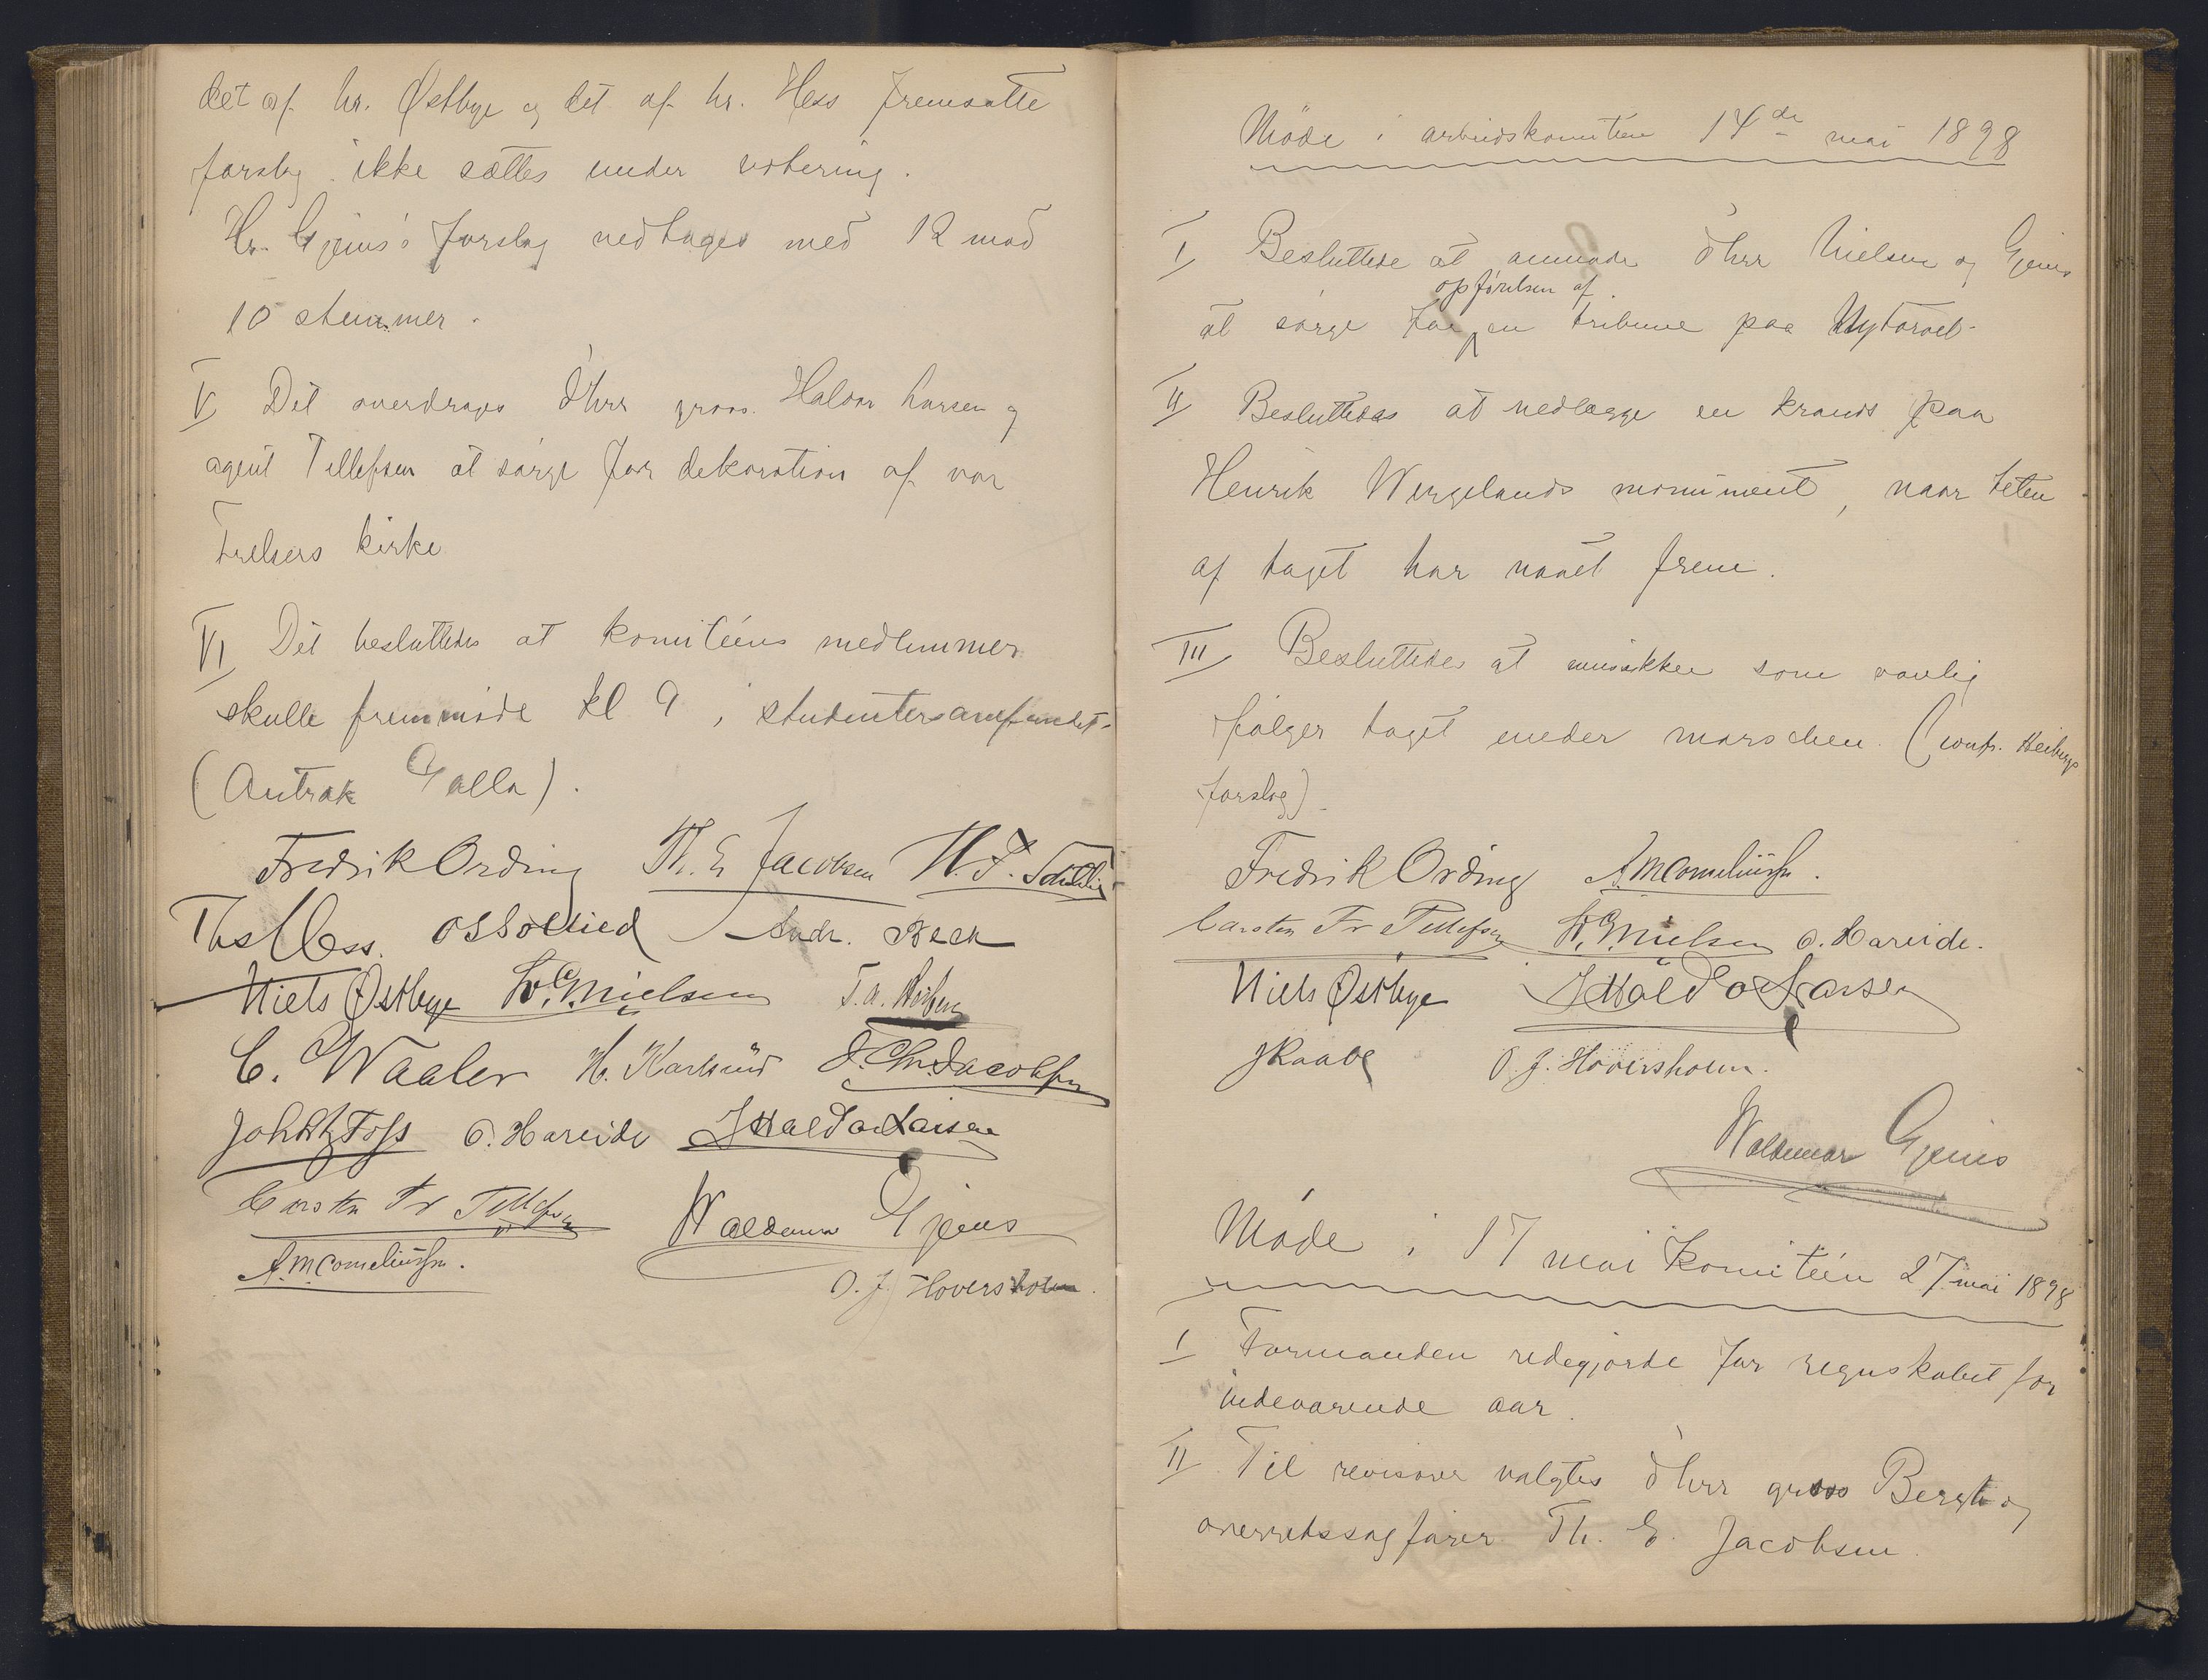 det af hr. Østbye og det af hr. Hess fremsatte
forslag ikke sættes under votering.
Hr. Gjeius's forslag vedtages med 12 mod
10 stemmer.
V Det overdrages d'hrr gross. Halvor Larsen og
agent Tellefsen at sørge for dekoration af vor
Frelsers kirke
VI Det besluttedes at komitéens medlemmer
skulle fremmøde kl 9 i studentersamfundet.
(Antræk Galla).
Fredrik Ording Th. E Jacobsen
Ths Hess. Andr. Beck
Niels Østbye W. Nielsen
C. Waaler J. Chr. Jacobsen
Joh Foss O. Hareide J Haldor Larsen
Carsten Fr Tellefsen Waldemar Gjeius
A. M Corneliussen.
O. J. Hoversholm.
Møde i arbeidskomiteen 14de mai 1898
I Besluttede at anmode d'hrr Nielsen og Gjeius
opførelsen af
at sørge for en tribune paa Nytorvet.
II Besluttedes at nedlægge en krands paa
Henrik Wergelands monument, naar teten
af toget har naaet frem.
III Besluttedes at musikken som vanlig
følger toget under marschen. (confr. Heibergs
forslag).
Fredrik Ording A. M Corneliussen.
Carsten Fr Tellefsen W. Nielsen O. Hareide.
Niels Østbye J Haldor Larsen
J Raabe O. J. Hoversholm.
Waldemar Gjeius
Møde i 17 mai komitéen 27 mai 1898
I Formanden redegjorde for regnskabet for
indeværende aar.
II Til revisorer valgtes d'hrr gross Bergh og
overretssagfører Th. E. Jacobsen.